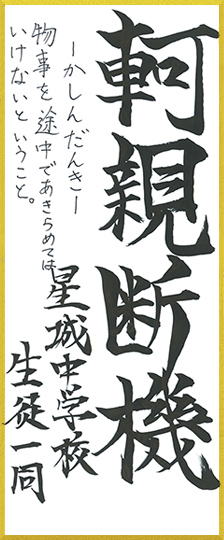 軻親断機
ーかしんだんきー
物事を途中であきらめては
いけないということ。
星城中学校
生徒一同